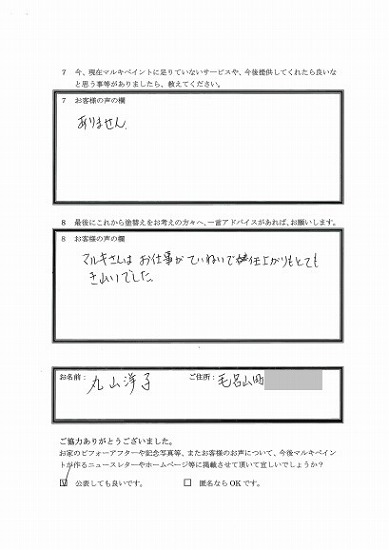 7 今、現在マルキペイントに足りていないサービスや、今後提供してくれたら良いな
と思う事等がありましたら、教えてください。
7 お客様の声の欄
ありません。
8 最後にこれから塗替えをお考えの方々へ、一言アドバイスがあれば、お願いします。
8 お客様の声の欄
マルキさんは お仕事がていねいで 仕上がりもとても
きれいでした。
お名前: 丸山洋子 ご住所: 毛呂山町
ご協力ありがとうございました。
お家のビフォーアフターや記念写真等、またお客様の声について、今後マルキペイン
トが作るニュースレターやホームページ等に掲載させて頂いて宜しいでしょうか?
☑ 公表しても良いです。 □ 匿名ならOKです。